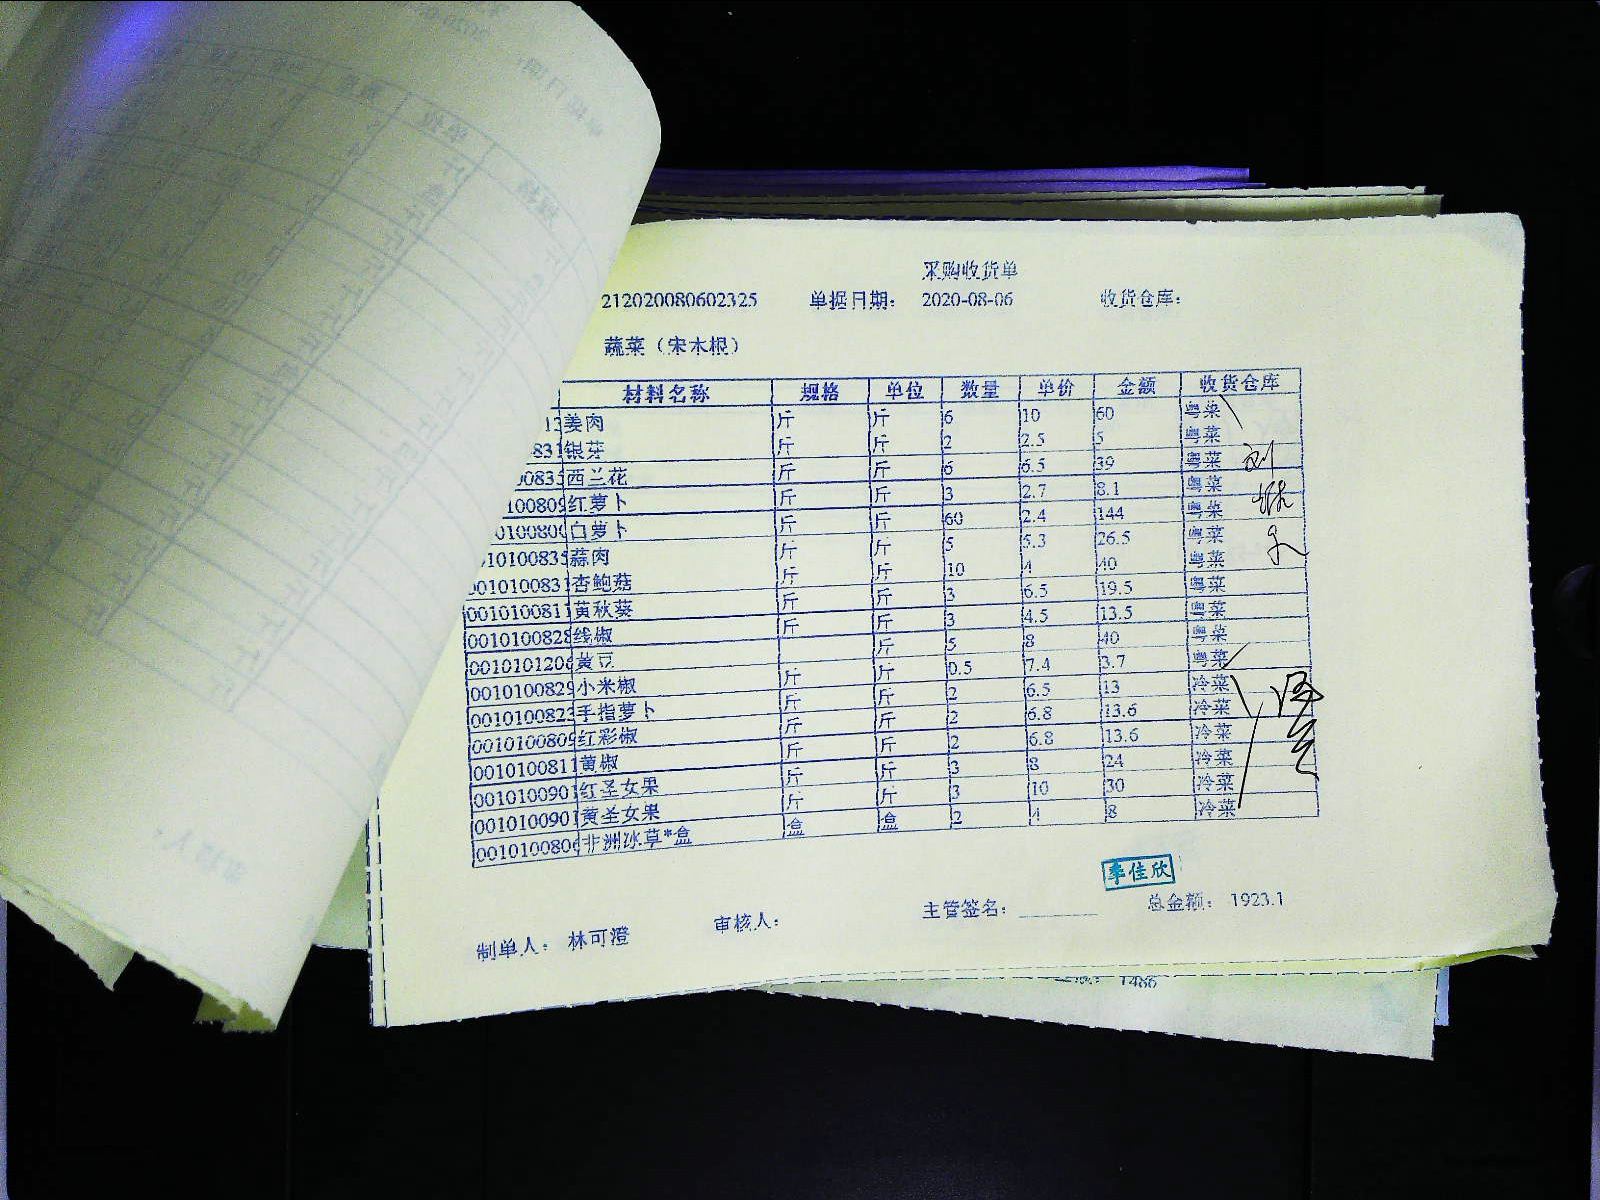 采购收货单
212020080602325 单据日期: 2020-08-06 收货仓库:
蔬菜（宋木根）
材料名称 规格 单位 数量 单价 金额 收货仓库
13 姜肉 斤 斤 6 10 60 粤菜
831 银芽 斤 斤 2 2.5 5 粤菜
00835 西兰花 斤 斤 6 6.5 39 粤菜
100809 红萝卜 斤 斤 3 2.7 8.1 粤菜
0100800 白萝卜 斤 斤 60 2.4 144 粤菜
10100835 蒜肉 斤 斤 5 5.3 26.5 粤菜
0010100831 杏鲍菇 斤 斤 10 4 40 粤菜
0010100811 黄秋葵 斤 斤 3 6.5 19.5 粤菜
0010100828 线椒 斤 斤 3 4.5 13.5 粤菜
0010101206 黄豆 斤 5 8 40 粤菜
0010100829 小米椒 斤 斤 0.5 7.4 3.7 粤菜
0010100823 手指萝卜 斤 斤 2 6.5 13 冷菜
0010100809 红彩椒 斤 斤 2 6.8 13.6 冷菜
0010100811 黄椒 斤 斤 2 6.8 13.6 冷菜
0010100901 红圣女果 斤 斤 3 8 24 冷菜
0010100901 黄圣女果 斤 斤 3 10 30 冷菜
0010100806 非洲冰草*盒 盒 盒 2 4 8 冷菜
李佳欣
制单人: 林可澄 审核人: 主管签名: 总金额: 1923.1
1486